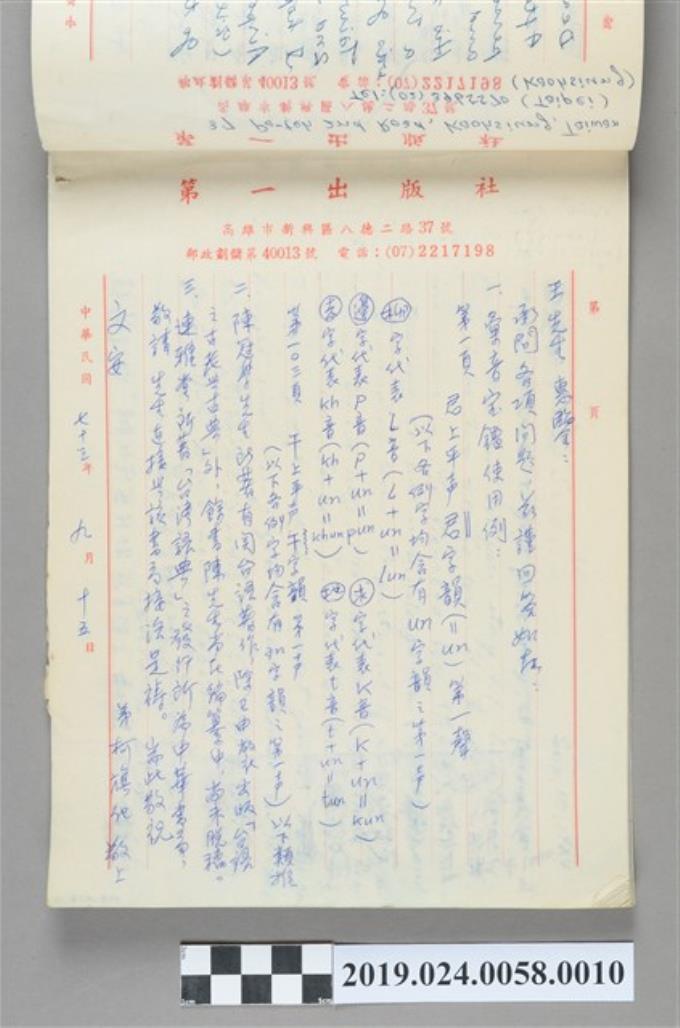 郵政劃儲第40013號 電話：(07)2217198 (Kaohsiung)
Tel:(02)3965570 (Taipei)
高雄市新興區八德二路37號
37 Pa-teh 2nd Road, Kaohsiung, Taiwan
第一出版社
第一出版社
高雄市新興區八德二路37號
郵政劃儲第40013號 電話：(07)2217198
第 頁
王先生 惠鑒：
承問各項問題，茲謹回答如左：
一、彙音寶鑑使用例：
第一頁 君上平声 君字韻(=un) 第一聲
(以下各例字均含有un字韻之第一声)
柳字代表L音(L+un=lun)
邊字代表P音(P+un=pun) 求字代表K音(K+un=kun)
去字代表kh音(kh+un=khun) 地字代表t音(t+un=tun)
第一〇三頁 干上平声 干字韻 第一声
(以下各例字均含有an字韻之第一声) 以下類推
二、陳冠學先生所著有関台語著作，除已由敝社出版「台語
之古老與古典」外，餘書陳先生尚在編纂中，尚未脫稿。
三、連雅堂所著「台湾語典」之發行所為中華書局，
敬請 先生直接與該書局接洽是禱。 耑此敬祝
文安
弟柯旗化敬上
中華民國 七十三年 九月 十五日
2019.024.0058.0010